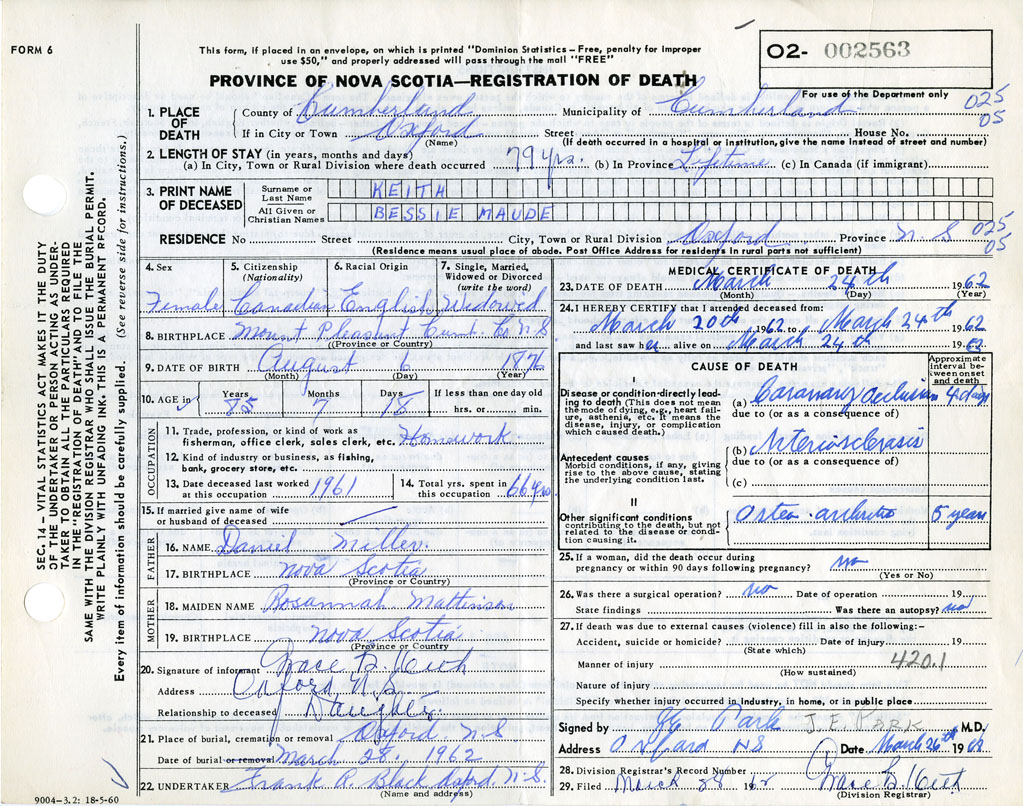 FORM 6
This form, if placed in an envelope, on which is printed "Dominion Statistics – Free, penalty for improper
use $50," and properly addressed will pass through the mail "FREE"
O2- 002563
PROVINCE OF NOVA SCOTIA—REGISTRATION OF DEATH
For use of the Department only
1. PLACE OF DEATH
County of Cumberland Municipality of Cumberland 025
If in City or Town Oxford Street House No. 05
(Name) (If death occurred in a hospital or institution, give the name instead of street and number)
2. LENGTH OF STAY (in years, months and days)
(a) In City, Town or Rural Division where death occurred 79 yrs. (b) In Province Lifetime (c) In Canada (if immigrant)
3. PRINT NAME OF DECEASED
Surname or Last Name KEITH
All Given or Christian Names BESSIE MAUDE
RESIDENCE No Street City, Town or Rural Division Oxford Province N.S 025
05
(Residence means usual place of abode. Post Office Address for residents in rural parts not sufficient)
4. Sex 5. Citizenship (Nationality) 6. Racial Origin 7. Single, Married, Widowed or Divorced (write the word)
Female Canadian English Widowed
8. BIRTHPLACE Mount Pleasant Cumb. Co N.S
(Province or Country)
9. DATE OF BIRTH August 6 1876
(Month) (Day) (Year)
10. AGE in Years Months Days If less than one day old
85 7 18 hrs. or min.
OCCUPATION
11. Trade, profession, or kind of work as
fisherman, office clerk, sales clerk, etc. Homework
12. Kind of industry or business, as fishing,
bank, grocery store, etc.
13. Date deceased last worked at this occupation 1961
14. Total yrs. spent in this occupation 66 yrs
15. If married give name of wife
or husband of deceased
FATHER
16. NAME Daniel Miller.
17. BIRTHPLACE Nova Scotia
(Province or Country)
MOTHER
18. MAIDEN NAME Rosannah Mattinson
19. BIRTHPLACE Nova Scotia
(Province or Country
20. Signature of informant Grace B. Keith
Address Oxford N.S.
Relationship to deceased Daughter
21. Place of burial, cremation or removal Oxford N S
Date of burial or removal March 28, 1962
22. UNDERTAKER Frank R. Black Oxford N.S.
(Name and address)
9004-3.2: 18-5-60
MEDICAL CERTIFICATE OF DEATH
23. DATE OF DEATH March 24th 1962
(Month) (Day) (Year)
24. I HEREBY CERTIFY that I attended deceased from:
March 20th, 1962 to March 24th 1962
and last saw her alive on March 24th 1962
CAUSE OF DEATH
Approximate interval between onset and death
I
Disease or condition directly leading to death (This does not mean the mode of dying, e.g., heart failure, asthenia, etc. It means the disease, injury, or complication which caused death.)
(a) Coronary occlusion 4 days
due to (or as a consequence of)
Antecedent causes
Morbid conditions, if any, giving rise to the above cause, stating the underlying condition last.
(b) Arteriosclerosis
due to (or as a consequence of)
(c)
II
Other significant conditions
contributing to the death, but not related to the disease or condition causing it.
Osteo-arthritis 5 years
25. If a woman, did the death occur during
pregnancy or within 90 days following pregnancy? no
(Yes or No)
26. Was there a surgical operation? no Date of operation 19
State findings Was there an autopsy? no
27. If death was due to external causes (violence) fill in also the following:–
Accident, suicide or homicide? Date of injury 19
(State which)
Manner of injury 420.1
(How sustained)
Nature of injury
Specify whether injury occurred in industry, in home, or in public place
Signed by J E Park J. E. PARK M.D.
Address Oxford NS Date March 26th 1962
28. Division Registrar's Record Number
29. Filed March 28 1962 Grace B. Keith
(Division Registrar)
SEC. 14 – VITAL STATISTICS ACT MAKES IT THE DUTY
OF THE UNDERTAKER OR PERSON ACTING AS UNDER-
TAKER TO OBTAIN ALL THE PARTICULARS REQUIRED
IN THE "REGISTRATION OF DEATH" AND TO FILE THE
SAME WITH THE DIVISION REGISTRAR WHO SHALL ISSUE THE BURIAL PERMIT.
WRITE PLAINLY WITH UNFADING INK. THIS IS A PERMANENT RECORD.
Every item of information should be carefully supplied. (See reverse side for instructions.)